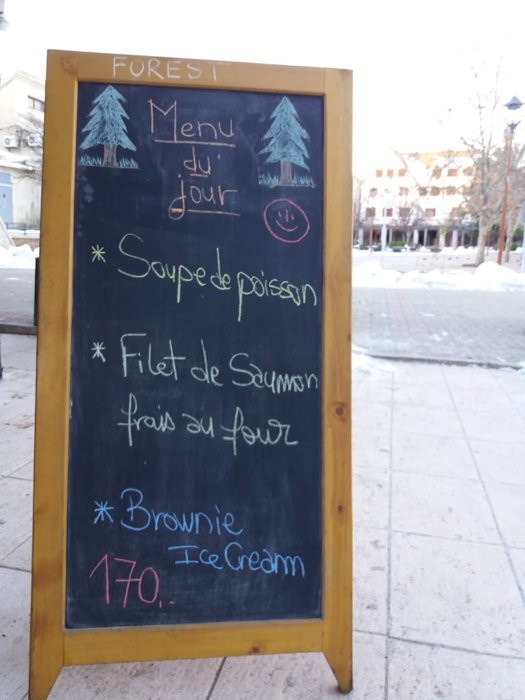 FOREST
Menu
du
jour
* Soupe de poisson
* Filet de Saumon
frais au four
* Brownie
Ice Cream
170,-